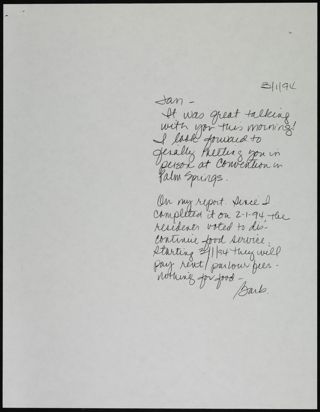 3/1/94
Jan -
It was great talking
with you this morning!
I look forward to
finally meeting you in
person at Convention in
Palm Springs.
On my report. Since I
completed it on 2-1-94, the
residents voted to dis-
continue food service.
Starting 3/1/94 they will
pay rent/parlour fees -
nothing for food -
Barb.